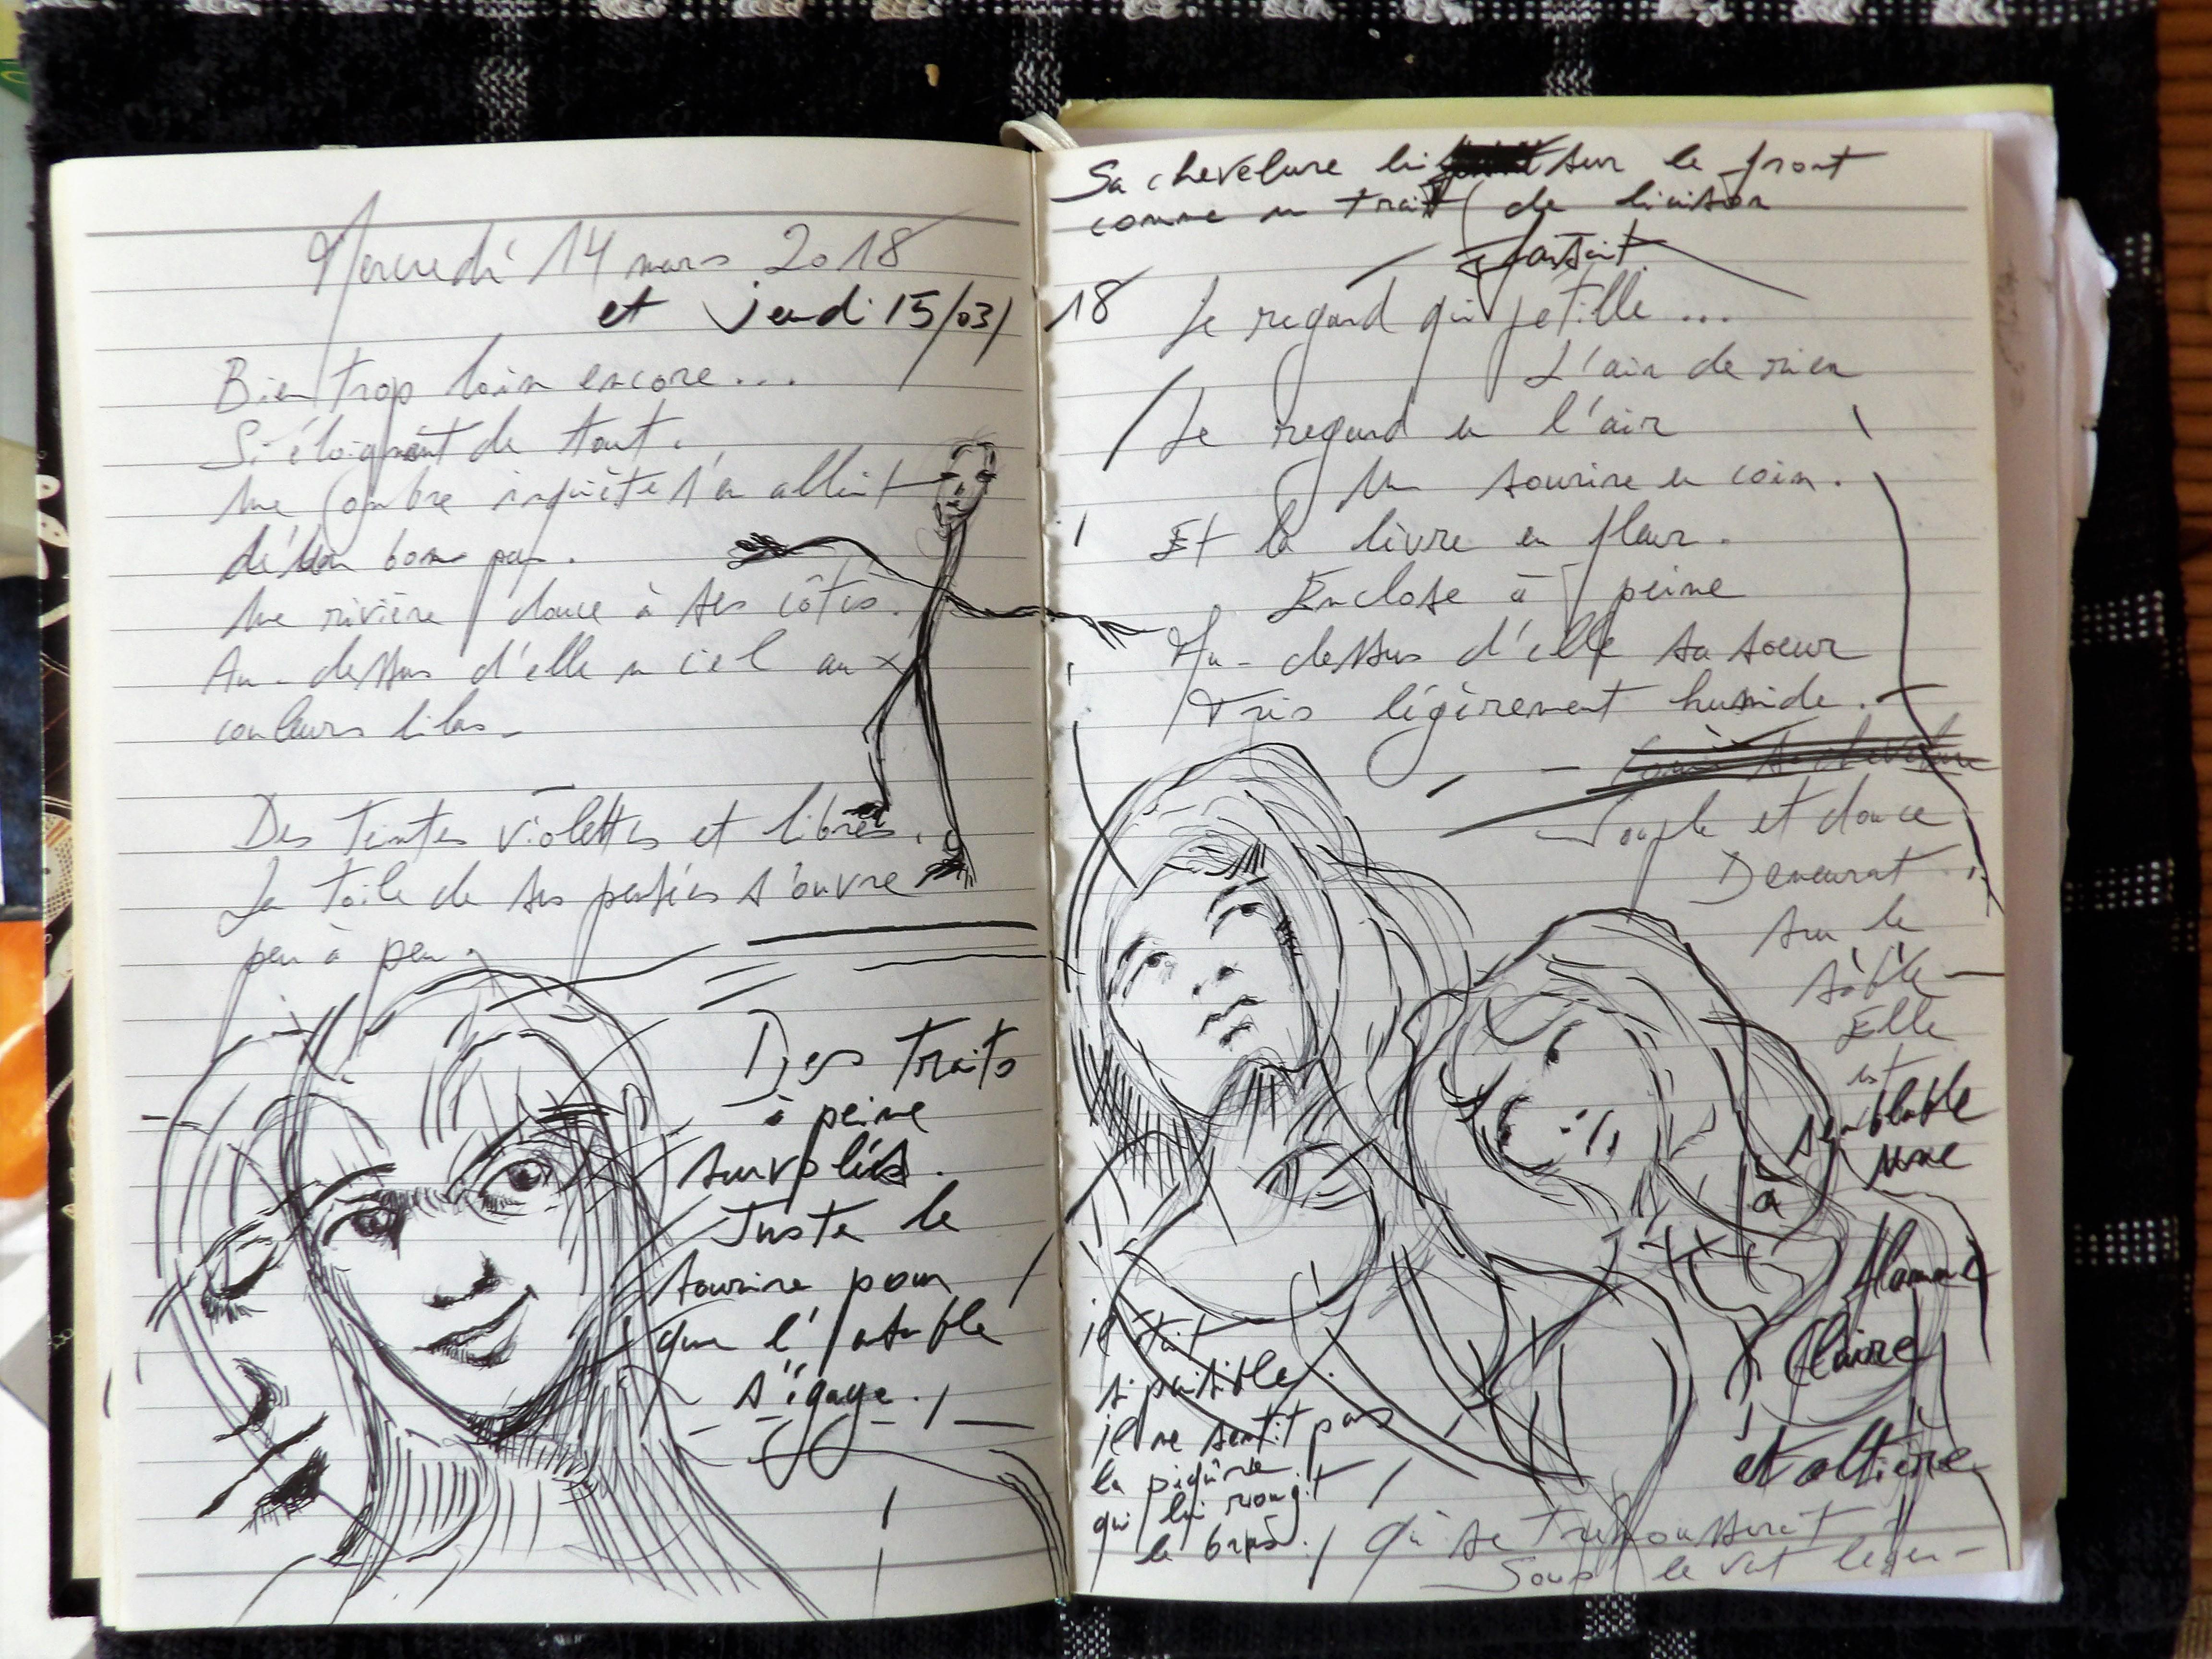 Mercredi 14 mars 2018
et jeudi 15/03/
Bien trop loin encore...
Si éloignant de tout.
Une ombre inquiète s'en allait
bon pas.
Une rivière douce à ses côtés.
Au-dessus d'elle un ciel aux
couleurs lilas_
Des Teintes violettes et libres.
La Toile de ses pensées s'ouvre
peu à peu.
Des Traits
à peine
surpliés.
Juste le
sourire pour
que l'
s'égaye.
18
Sa chevelure lui sur le front
comme un trait de liaison
faisait
Le regard qui pétille...
L'air de rien
Le regard en l'air
Un sourire en coin.
Et la lèvre en fleur.
Enclose à peine
Au-dessus d'elle sa soeur
Très légèrement humide.
sa chevelure
Souple et douce
Demeurant
sur le
sable_
Elle
est
semblable
à une
flamme
Claire
et altière
qui se trémousserait
Sous le vent léger_
il était
si paisible.
il ne sentit pas
la piqûre
qui lui rougit
le bras.